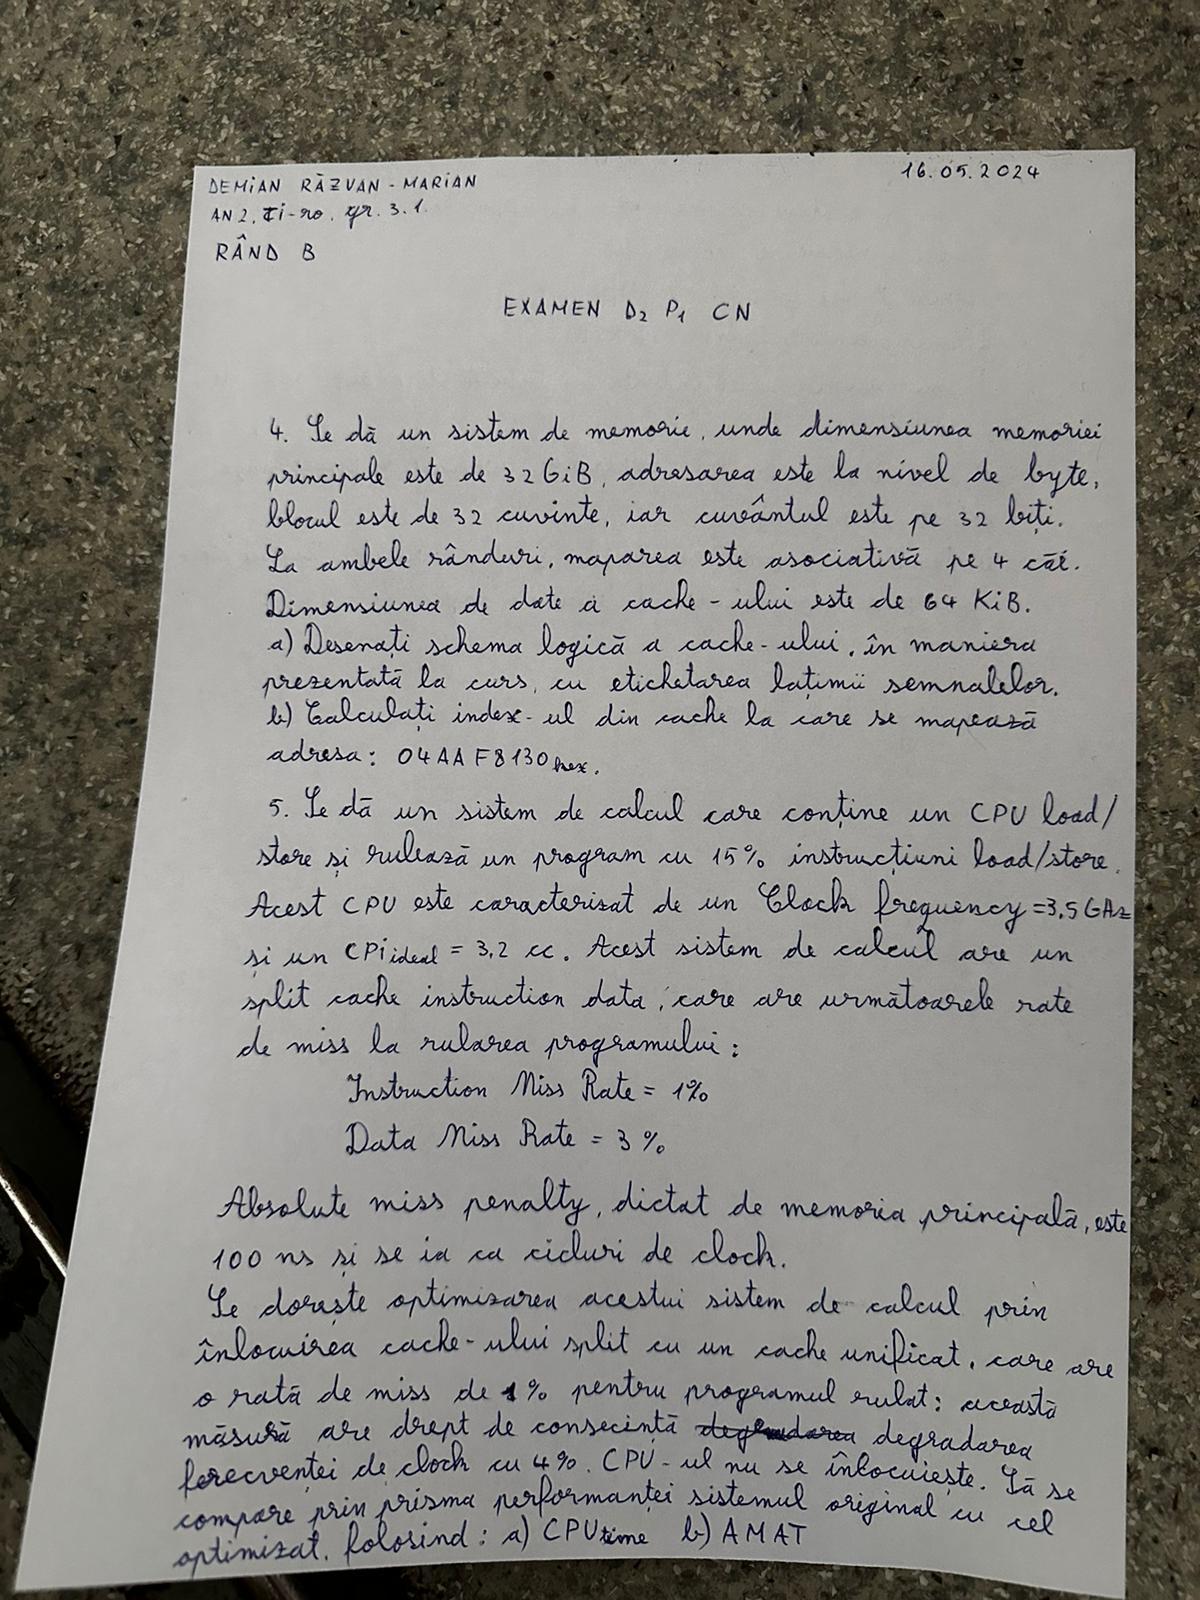 DEMIAN RĂZVAN-MARIAN
16.05.2024
AN 2, Ti-ro, gr. 3.1.
RÂND B
EXAMEN D2 P1 CN
4. Se dă un sistem de memorie, unde dimensiunea memoriei
principale este de 32 GiB, adresarea este la nivel de byte,
blocul este de 32 cuvinte, iar cuvântul este pe 32 biți.
La ambele rânduri, maparea este asociativă pe 4 căi.
Dimensiunea de date a cache-ului este de 64 KiB.
a) Desenați schema logică a cache-ului, în maniera
prezentată la curs, cu etichetarea lațimii semnalelor.
b) Calculați index-ul din cache la care se mapează
adresa: 04AAF8130hex.
5. Se dă un sistem de calcul care conține un CPU load/
store și rulează un program cu 15% instrucțiuni load/store.
Acest CPU este caracterizat de un Clock frequency = 3,5 GHz
și un CPi ideal = 3,2 cc. Acest sistem de calcul are un
split cache instruction data, care are următoarele rate
de miss la rularea programului:
Instruction Miss Rate = 1%
Data Miss Rate = 3%
Absolute miss penalty, dictat de memoria principală, este
100 ns și se ia ca cicluri de clock.
Se dorește optimizarea acestui sistem de calcul prin
înlocuirea cache-ului split cu un cache unificat, care are
o rată de miss de 1% pentru programul rulat; această
măsură are drept de consecință degradarea
ferecvenței de clock cu 4%. CPU-ul nu se înlocuiește. Să se
compare prin prisma performanței sistemul original cu cel
optimizat, folosind: a) CPUtime b) AMAT